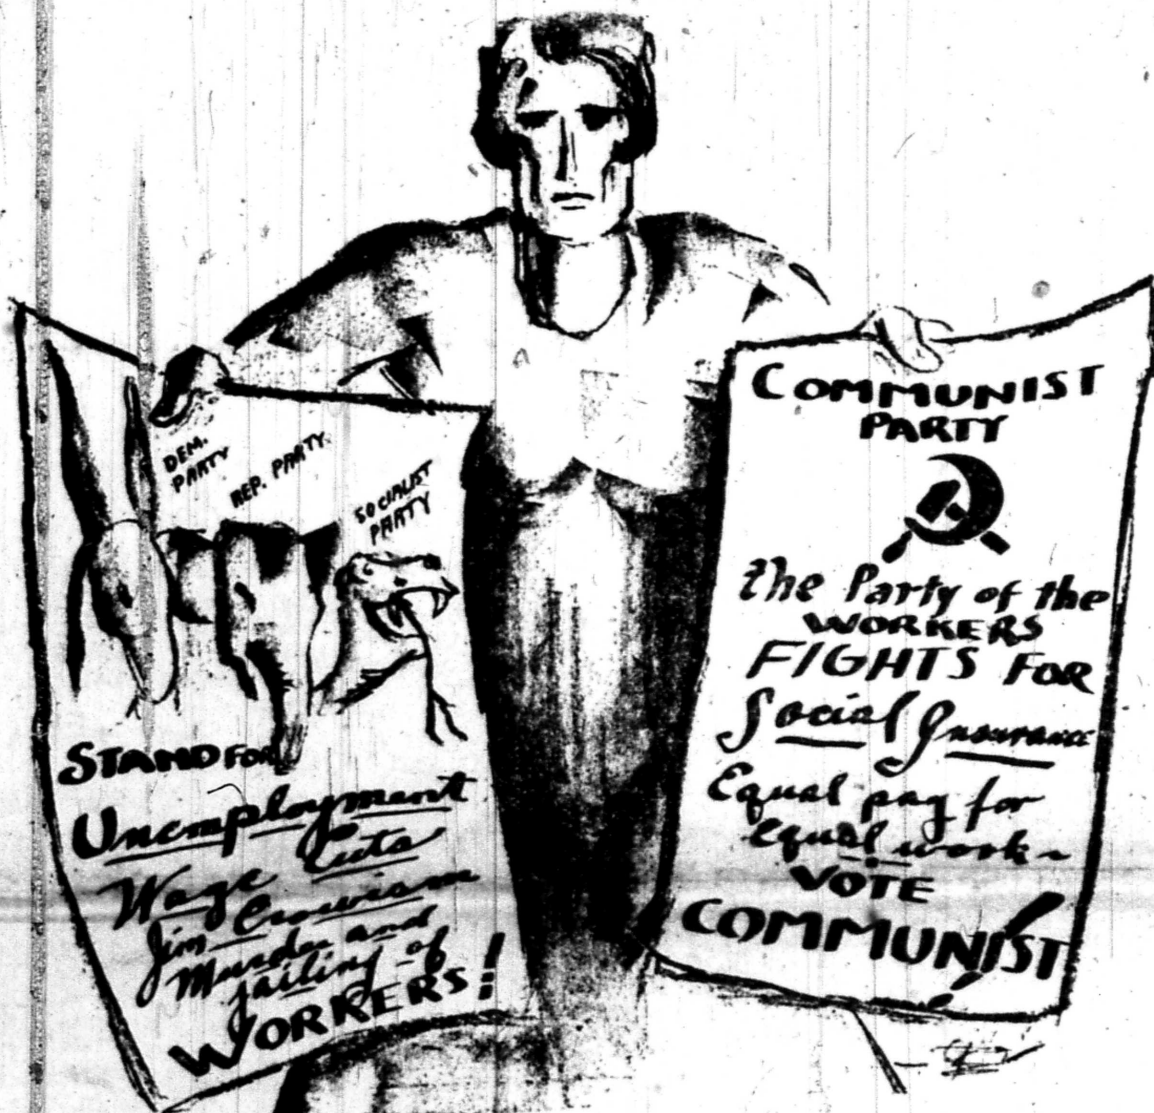 DEM.
PARTY
REP. PARTY.
SOCIALIST
PARTY
STAND FOR
Unemployment
Wage Cuts
Jim-Crowism
Murder and
jailing of
WORKERS!
COMMUNIST
PARTY
the Party of the
WORKERS
FIGHTS FOR
Social Insurance
Equal pay for
equal work-
VOTE
COMMUNIST!